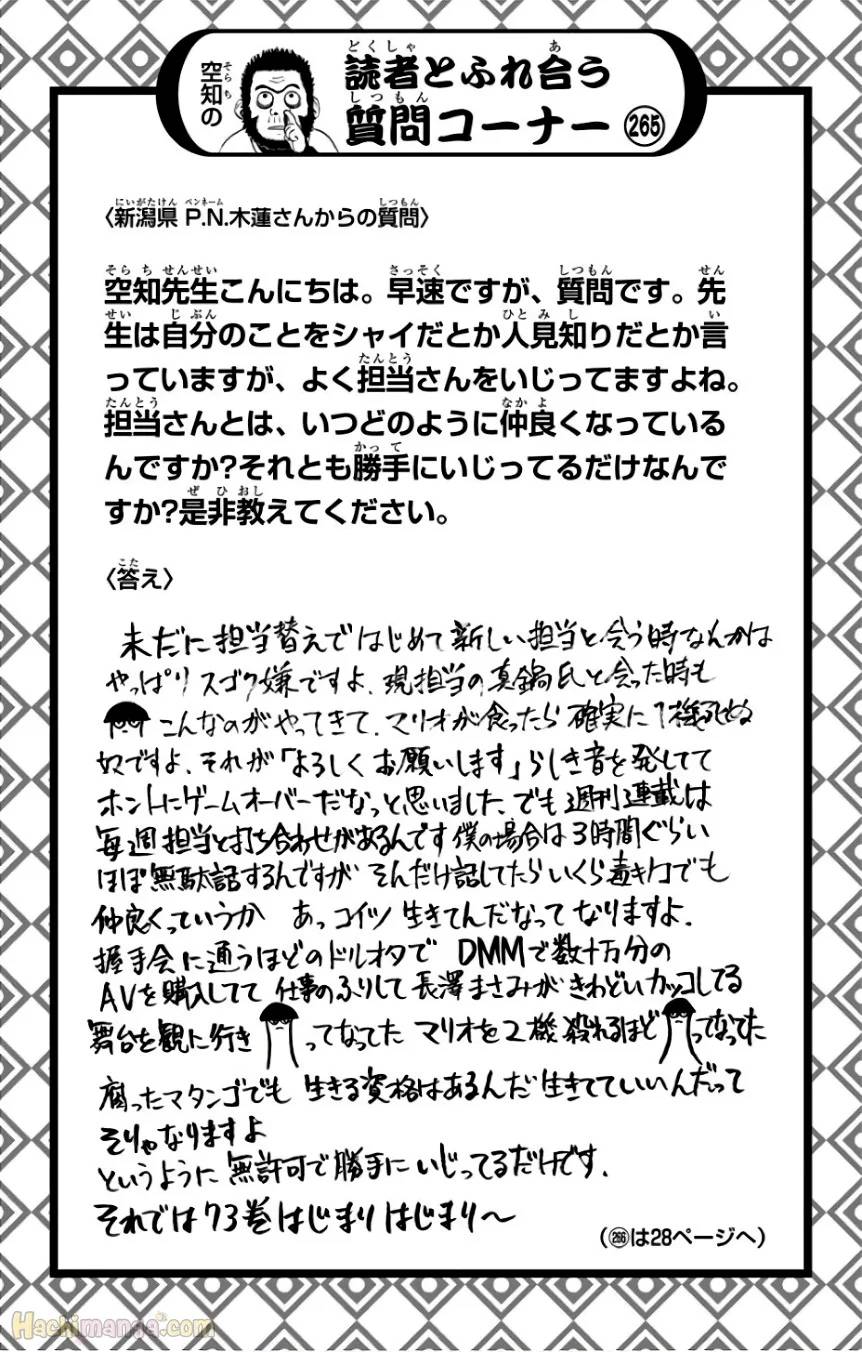 空知の
読者とふれ合う
質問コーナー 265
〈新潟県 P.N.木蓮さんからの質問〉
空知先生こんにちは。早速ですが、質問です。先
生は自分のことをシャイだとか人見知りだとか言
っていますが、よく担当さんをいじってますよね。
担当さんとは、いつどのように仲良くなっている
んですか?それとも勝手にいじってるだけなんで
すか?是非教えてください。
〈答え〉
未だに担当替えではじめて新しい担当と会う時なんかは
やっぱりスゴク嫌ですよ、現担当の真鍋氏と会った時も
こんなのがやってきて、マリオが食ったら確実に1機死ぬ
奴ですよ、それが「よろしくお願いします」らしき音を発してて
ホントにゲームオーバーだなっと思いました、でも週刊連載は
毎週担当と打ち合わせがあるんです僕の場合は3時間ぐらい
ほぼ無駄話するんですが そんだけ話してたらいくら毒キノコでも
仲良くっていうか あっコイツ生きてんだなってなりますよ.
握手会に通うほどのドルオタで DMMで数十万分の
AVを購入してて 仕事のふりして長澤まさみがきわどいカッコしてる
舞台を観に行き ってなってた マリオを2機殺れるほど ってなってた
腐ったマタンゴでも 生きる資格はあるんだ生きてていいんだって
そりゃなりますよ
というように無許可で勝手にいじってるだけです.
それでは73巻はじまりはじまり〜
(266は28ページへ)
Hachimanga.com